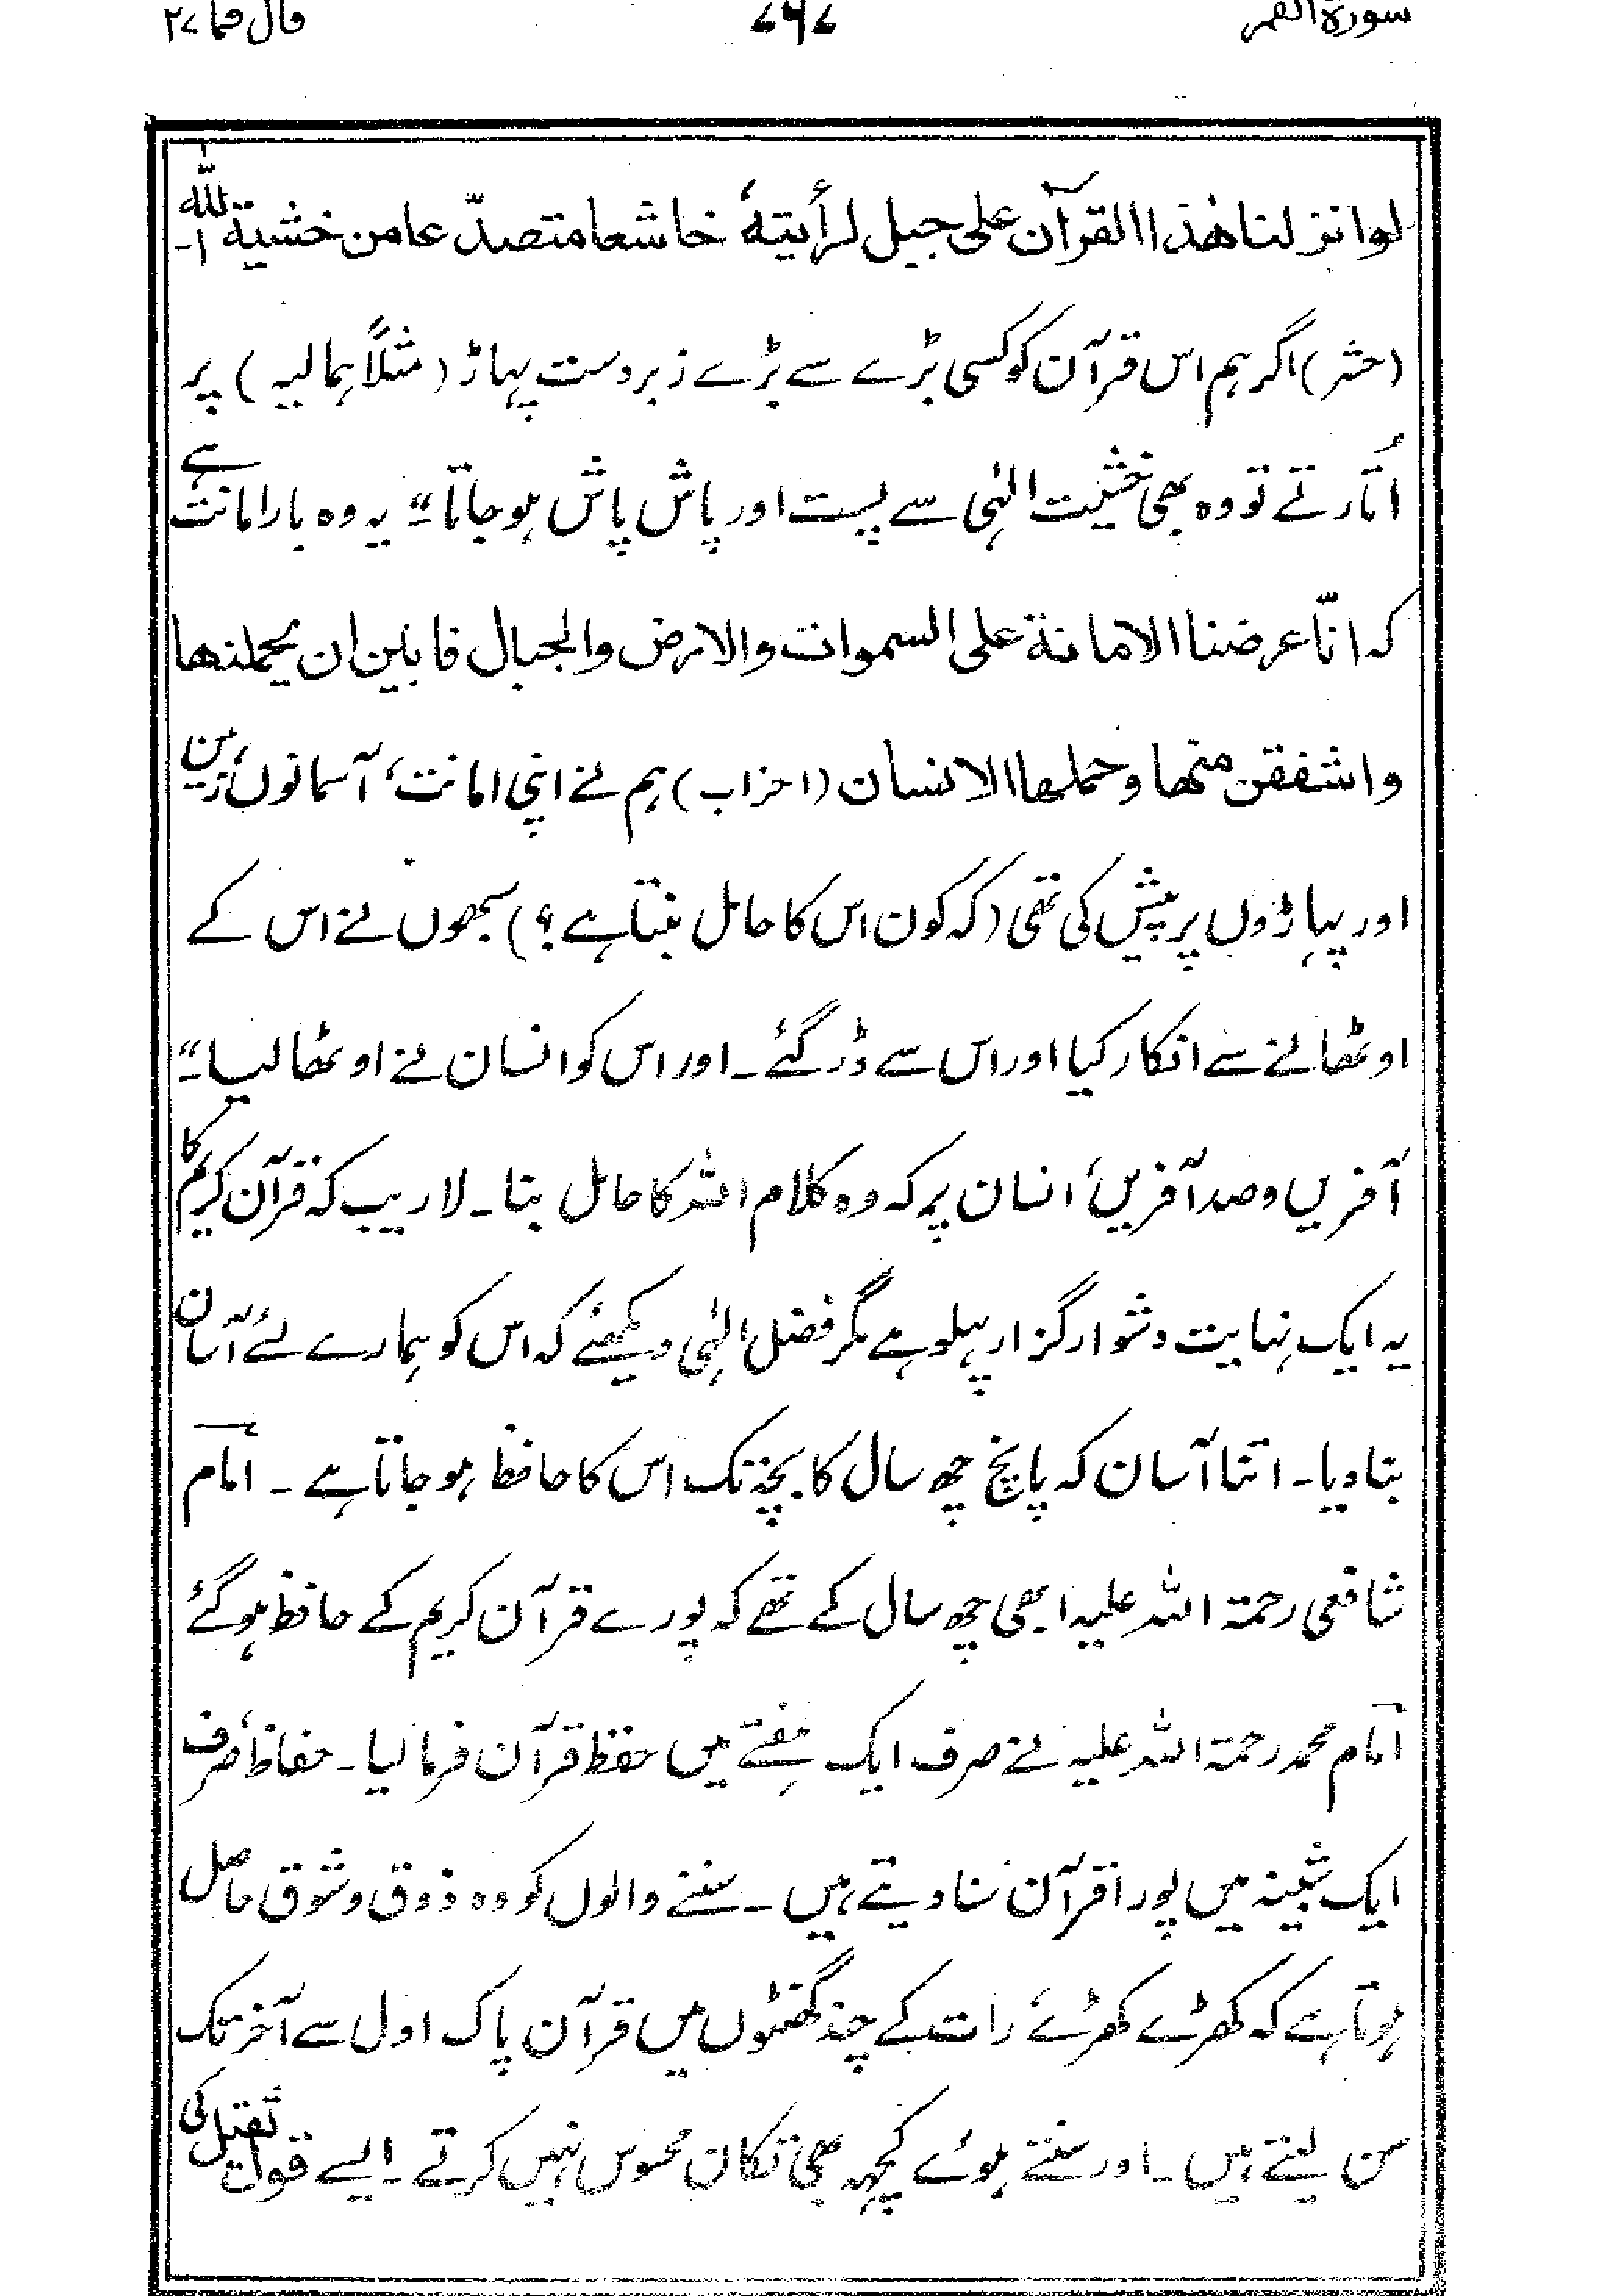 سورۃ القمر ۷۶۷ قال فما ۲۷
لوانزلنا هٰذا القرآن علی جبل لرأیتہٗ خاشعا متصدّعا من خشیۃ اللّٰہ۔
(حشر) اگر ہم اس قرآن کو کسی بڑے سے بڑے زبردست پہاڑ (مثلاً ہمالیہ) پر
اُتارتے تو وہ بھی خشیت الٰہی سے پست اور پاش پاش ہو جاتا۔" یہ وہ بار امانت ہے
کہ انّا عرضنا الامانۃ علی السموات والارض والجبال فابین ان یحملنها
واشفقن منها وحملها الانسان (احزاب) ہم نے اپنی امانت، آسمانوں، زمین
اور پہاڑوں پر پیش کی تھی (کہ کون اس کا حامل بنتا ہے؟) سبھوں نے اس کے
اوٹھانے سے انکار کیا اور اس سے ڈر گئے۔ اور اس کو انسان نے اوٹھا لیا۔"
آفریں و صد آفریں، انسان پر کہ وہ کلام اللہ کا حامل بنا۔ لاریب کہ قرآن کریم کا
یہ ایک نہایت دشوار گزار پہلو ہے مگر فضل الٰہی دیکھئے کہ اس کو ہمارے لئے آسان
بنا دیا۔ اتنا آسان کہ پانچ چھ سال کا بچّہ تک اس کا حافظ ہو جاتا ہے۔ امام
شافعی رحمۃ اللہ علیہ ابھی چھ سال کے تھے کہ پورے قرآن کریم کے حافظ ہو گئے
امام محمد رحمۃ اللہ علیہ نے صرف ایک ہفتے میں حفظ قرآن فرما لیا۔ حفاظ، صرف
ایک شبینہ میں پورا قرآن سنا دیتے ہیں۔ سننے والوں کو وہ ذوق و شوق حاصل
ہوتا ہے کہ کھڑے کھڑے، رات کے چند گھنٹوں میں قرآن پاک اول سے آخر تک
سن لیتے ہیں۔ اور سنتے ہوئے کچھ بھی تکان محسوس نہیں کرتے۔ ایسے قول ثقیل کی